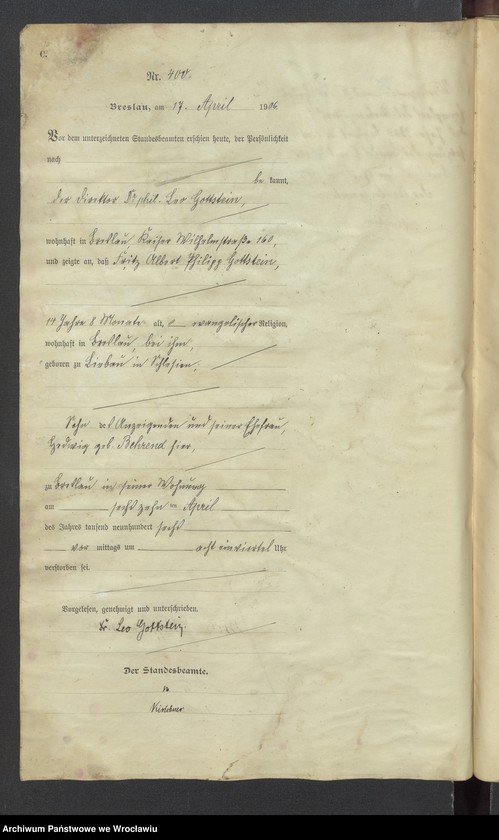 C.
Nr. 400.
Breslau, am 17. April 1906
Vor dem unterzeichneten Standesbeamten erschien heute, der Persönlichkeit
nach
be kannt,
der Direktor Dr phil. Leo Gottstein,
wohnhaft in Breslau, Kaiser Wilhelmstraße 160,
und zeigte an, daß Fritz Albert Philipp Gottstein,
14 Jahre 8 Monate alt, evangelischer Religion,
wohnhaft in Breslau, bei ihm,
geboren zu Liebau in Schlesien,
Sohn des Anzeigenden und seiner Ehefrau,
Hedwig geb. Behrend hier,
zu Breslau in seiner Wohnung
am sechzehn ten April
des Jahres tausend neunhundert sechs
vor mittags um acht einviertel Uhr
verstorben sei.
Vorgelesen, genehmigt und unterschrieben.
Dr. Leo Gottstein
Der Standesbeamte.
Kirschner
Archiwum Państwowe we Wrocławiu